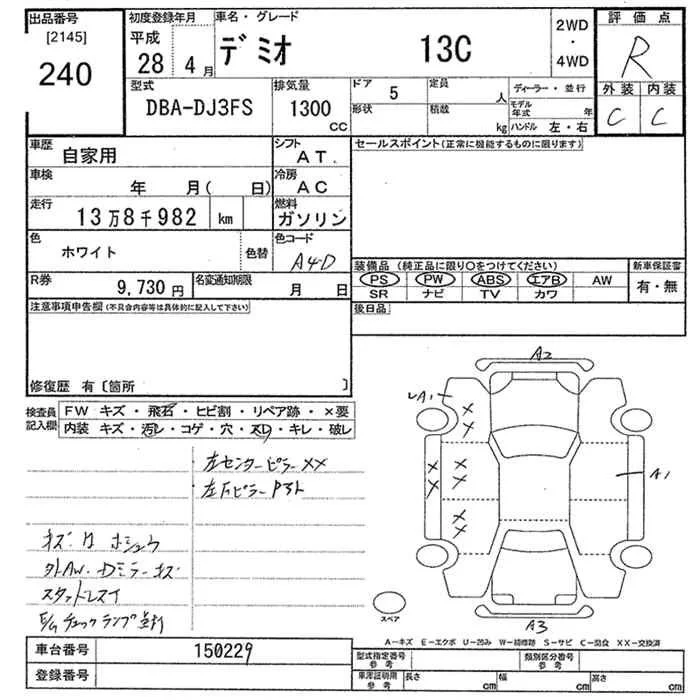 出品番号 [2145] 240
初度登録年月 平成 28年 4月
車名・グレード デミオ 13C
2WD・4WD
評価点 R
外装 C 内装 C
型式 DBA-DJ3FS
排気量 1300 CC
ドア 5 形状
定員 人 積載 kg
ディーラー・並行
モデル年式 年
ハンドル 左・右
車歴 自家用
シフト AT
セールスポイント(正常に機能するものに限ります)
車検 年 月( 日)
冷房 AC
走行 13万8千982 km
燃料 ガソリン
色 ホワイト 色替
色コード A4D
装備品 (純正品に限り○をつけてください)
新車保証書
PS PW ABS エアB AW
SR ナビ TV カワ
有・無
R券 9,730円
名変通知期限 月 日
後日品
注意事項申告欄(不具合内容等は具体的に記入して下さい)
修復歴 有〔箇所 〕
検査員記入欄
FW キズ・飛石・ヒビ割・リペア跡・×要
内装 キズ・汚レ・コゲ・穴・スレ・キレ・破レ
左センターピラーXX
左Fピラー
キズ ホシュウ
外AW・Dミラーキズ
スタットレスイ
E/Gチェックランプ点灯
A2
A1
A1
A3
スペア
A-キズ E-エクボ U-凹み W-補修跡 S-サビ C-腐食 XX-交換済
車台番号 150229
登録番号
型式指定番号 参考
類別区分番号 参考
車庫証明用 参考
長さ cm 幅 cm 高さ cm